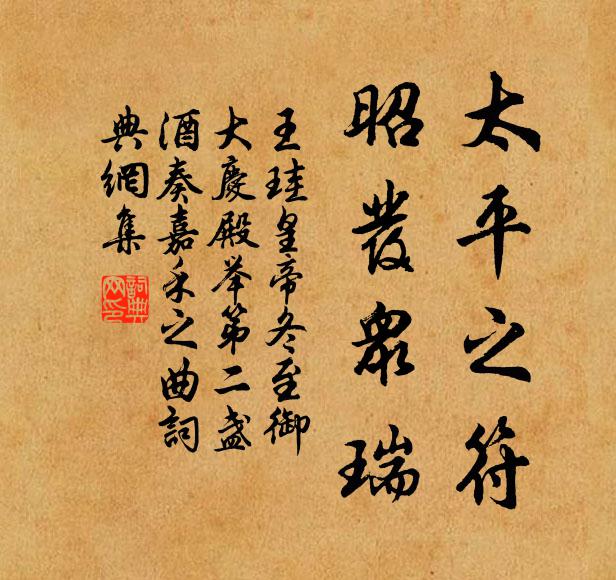 太平之符
昭發眾瑞
王珪皇帝冬至御
大慶殿举第二盏
酒奏嘉禾之曲詞
典網集
詞典
网印